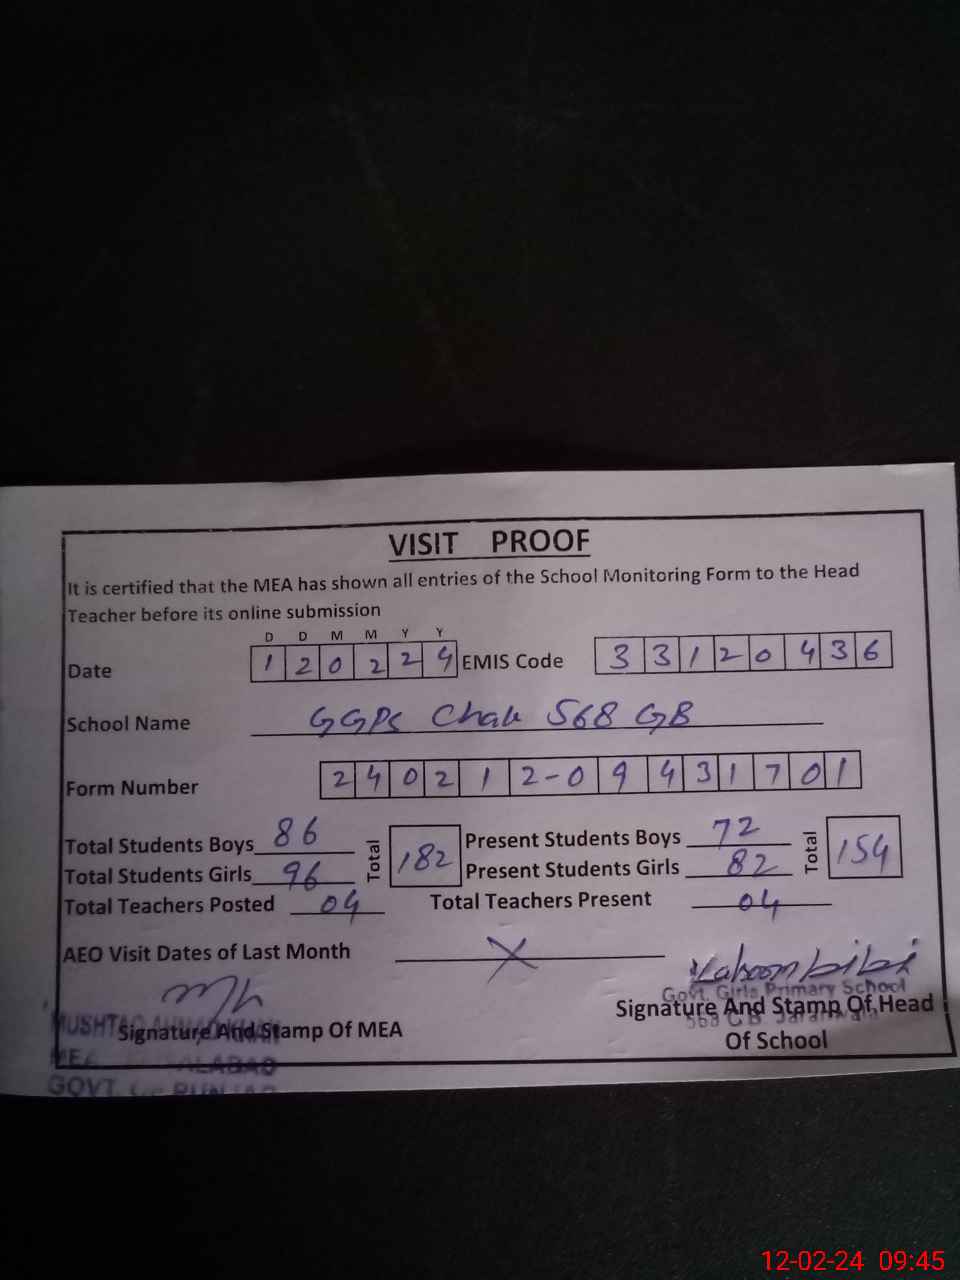 VISIT PROOF
It is certified that the MEA has shown all entries of the School Monitoring Form to the Head
Teacher before its online submission
D D M M Y Y
Date 1 2 0 2 2 4 EMIS Code 3 3 1 2 0 4 3 6
School Name GGPS Chak 568 GB
Form Number 2 4 0 2 1 2-0 9 4 3 1 7 0 1
Total Students Boys 86 Total 182 Present Students Boys 72 Total 154
Total Students Girls 96 Present Students Girls 82
Total Teachers Posted 04 Total Teachers Present 04
AEO Visit Dates of Last Month X
bibi
Govt. Girls Primary School
Signature And Stamp Of MEA Signature And Stamp Of Head
Of School
MEA
GOVT.
12-02-24 09:45